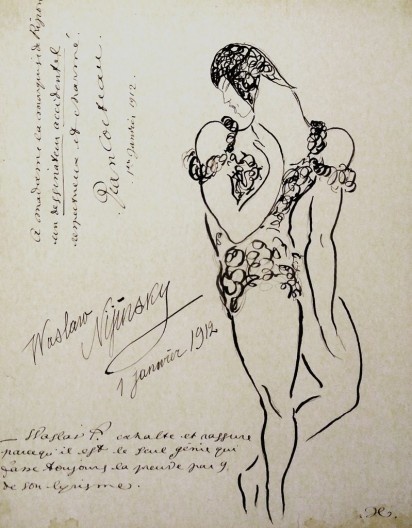 A madame la marquise de Ripon
un dessinateur accidentel
respectueux et charmé.
Jean Cocteau.
1er janvier 1912.
Waslaw
Nijinsky
1 janvier 1912
— Waslaw exhalte et rassure
parcequ'il est le seul génie qui
fasse toujours la preuve par 9
de son lyrisme.